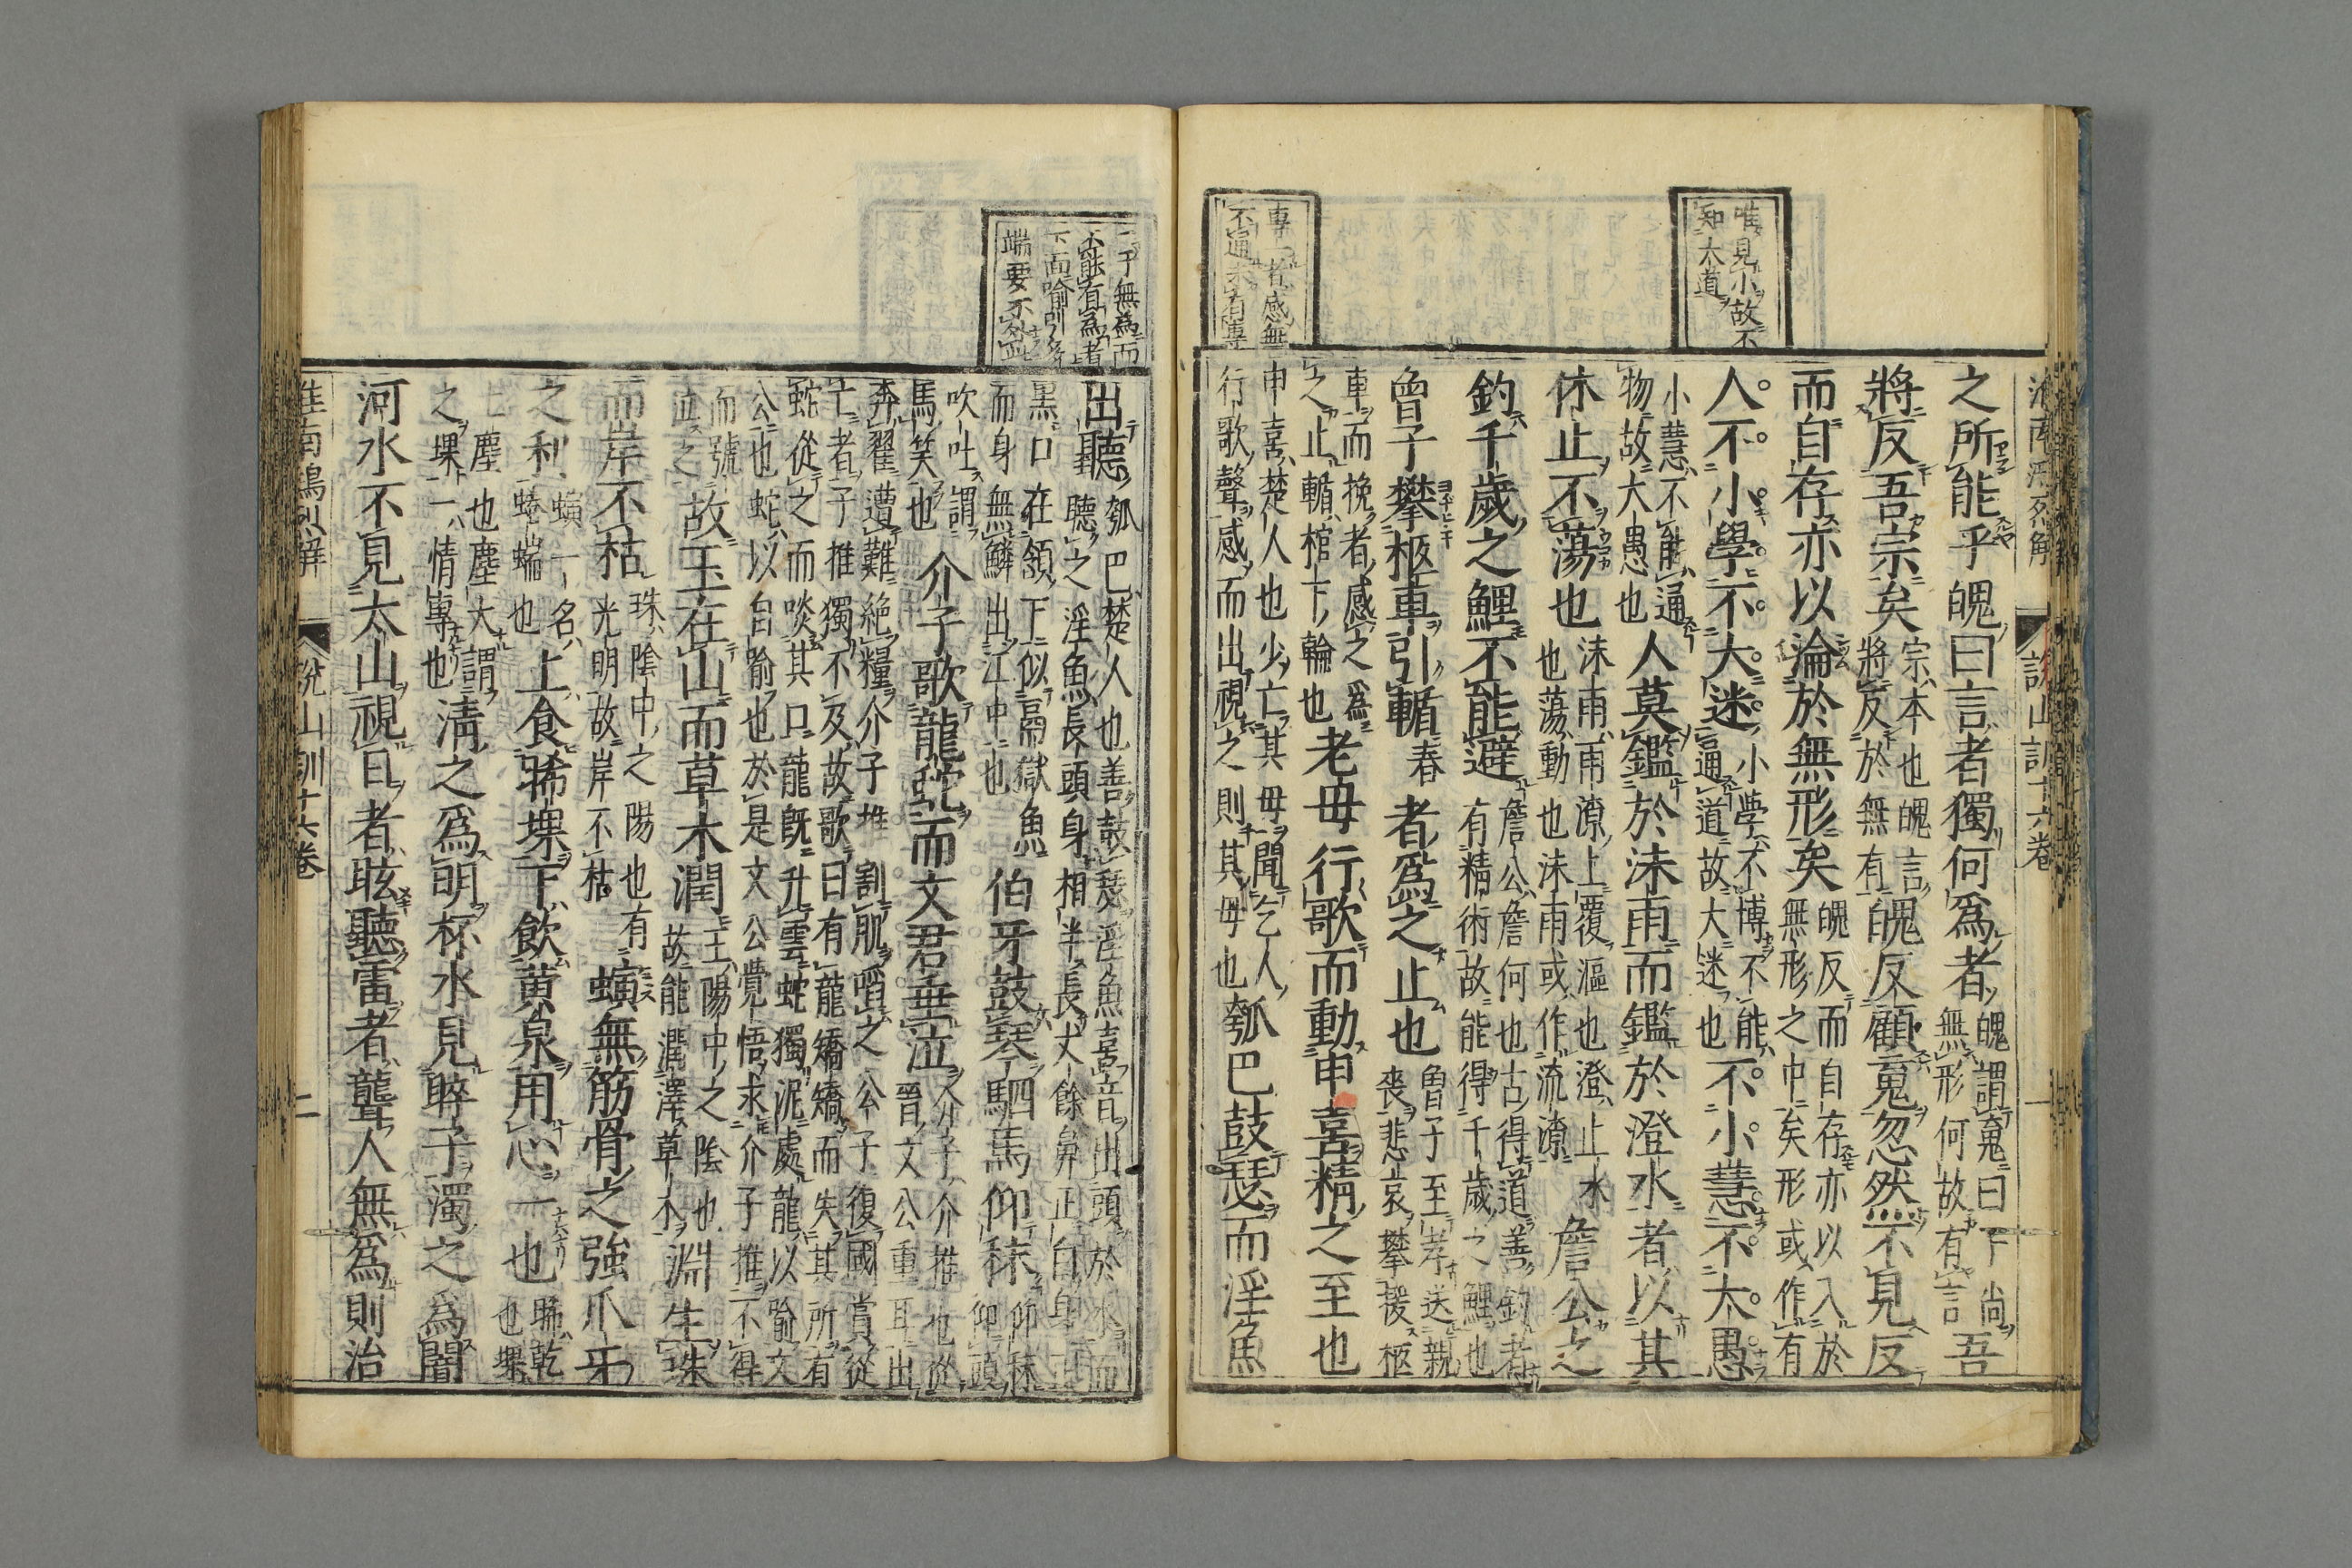 淮南鴻烈解 說山訓十六卷 一
唯見小故不
知大道
之所能乎魄曰言者獨何爲者
魄謂䰟曰下尚
無形何故有言
吾
將反吾宗矣
宗本也魄言
將反於無有
魄反顧䰟忽然不見反
而自存亦以淪於無形矣
魄反而自存亦以入於
無形之中矣形或作有
人不小學不大迷
小學不博不能
通道故大迷也
不小慧不大愚
小慧不能通
物故大愚也
人莫鑑於沬雨而鑑於澄水者以其
休止不蕩也
沬雨雨潦上覆漚也澄止水
也蕩動也沬雨或作流潦
詹公之
釣千歲之鯉不能避
詹公詹何也古得道善釣者
有精術故能得千歲之鯉也
曾子攀柩車引輴春者爲之止也
曾子至孝送親
喪悲哀攀援柩
車而挽者感之爲
之止輴棺下輪也
老母行歌而動申喜精之至也
專一者感無
不通未有專
申喜楚人也少亡其母聞乞人
行歌聲感而出視之則其母也
瓠巴鼓瑟而淫魚
子無爲而
不能有爲者
下面喻引多
端要不外此
出聽
瓠巴楚人也善鼓瑟淫魚喜音出頭於水而
聽之淫魚長頭身相半長丈餘鼻正白身正
黑口在頷下似鬲獄魚
而身無鱗出江中也
伯牙鼓琴駟馬仰秣
仰秣
仰頭
吹吐謂
馬笑也
介子歌龍蛇而文君垂泣
介子介推也從
晉文公重耳出
奔翟遭難絕糧介子推割肌啗之公子復國賞從
亡者子推獨不及故歌曰有龍矯矯而失其所有
蛇從之而啖其口龍旣升雲蛇獨泥處龍以喻文
公也蛇以自喻也於是文公覺悟求介子推不得
而號
泣之
故玉在山而草木潤
玉陽中之陰也
故能潤澤草木
淵生珠
而岸不枯
珠陰中之陽也有
光明故岸不枯
螾無筋骨之強爪牙
之利
螾一名
蜷蝺也
上食晞堁下飲黃泉用心一也
晞乾
也堁
土塵也塵大謂
之堁一情專也
淸之爲明杯水見眸子濁之爲闇
河水不見太山視日者眩聽雷者聾人無爲則治
淮南鴻烈解 說山訓十六卷 二